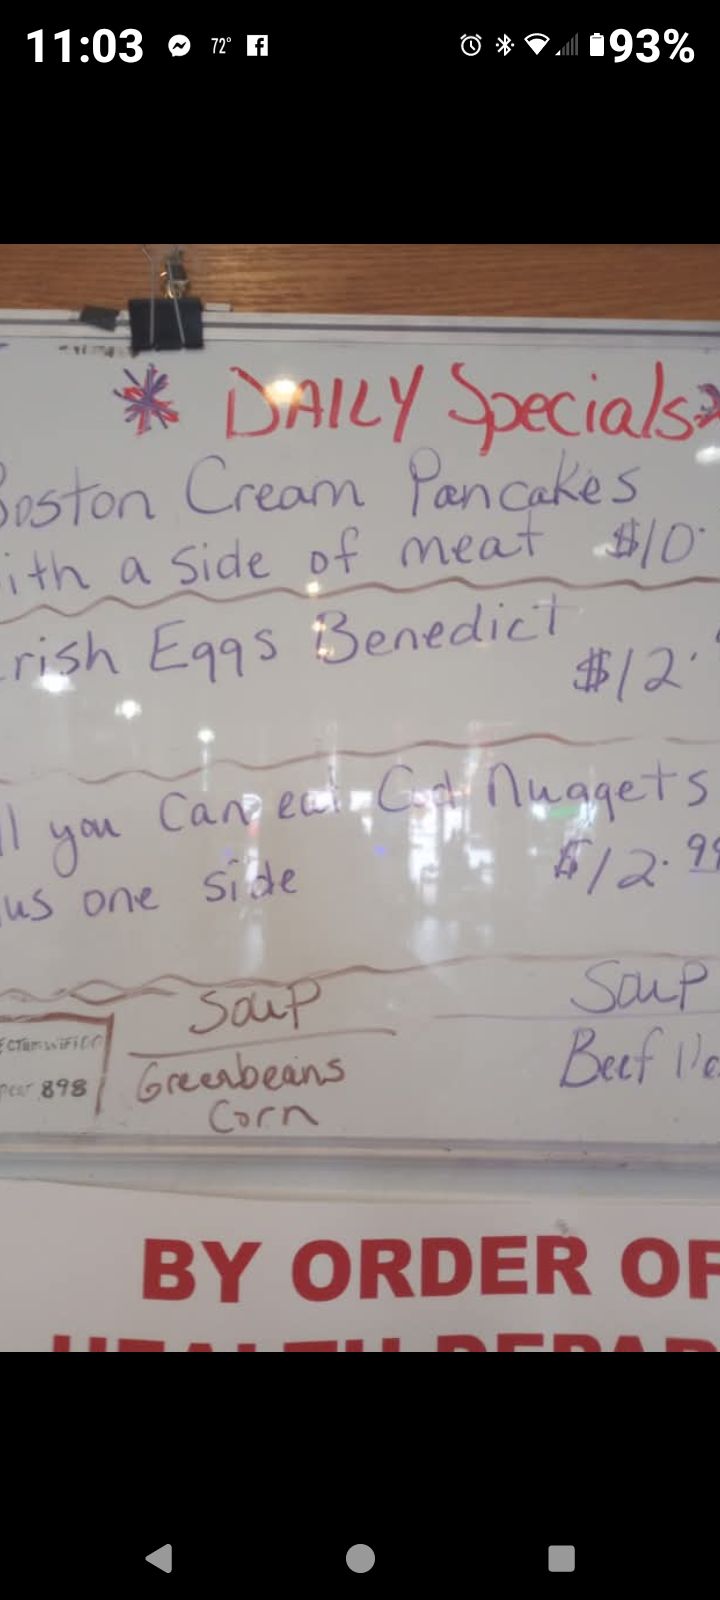 11:03 72° 93%
DAILY Specials
oston Cream Pancakes
ith a side of meat $10.
rish Eggs Benedict
$12.
ll you can eat Cod Nuggets
us one side $12.99
Soup Soup
Greenbeans Beef
Corn
898
BY ORDER OF
HEALTH DEPAR